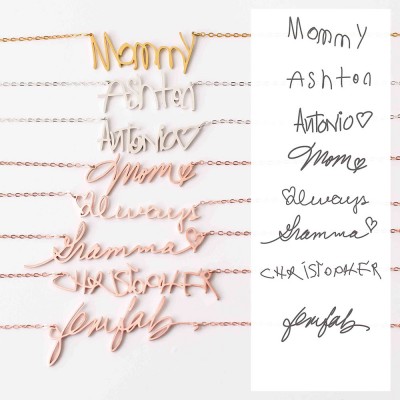 Mommy
Ashton
Antonio♡
Mom♡
always
Gramma♡
CHRISTOPHER
Mommy
Ashton
Antonio♡
Mom♡
always
Gramma♡
CHRISTOPHER